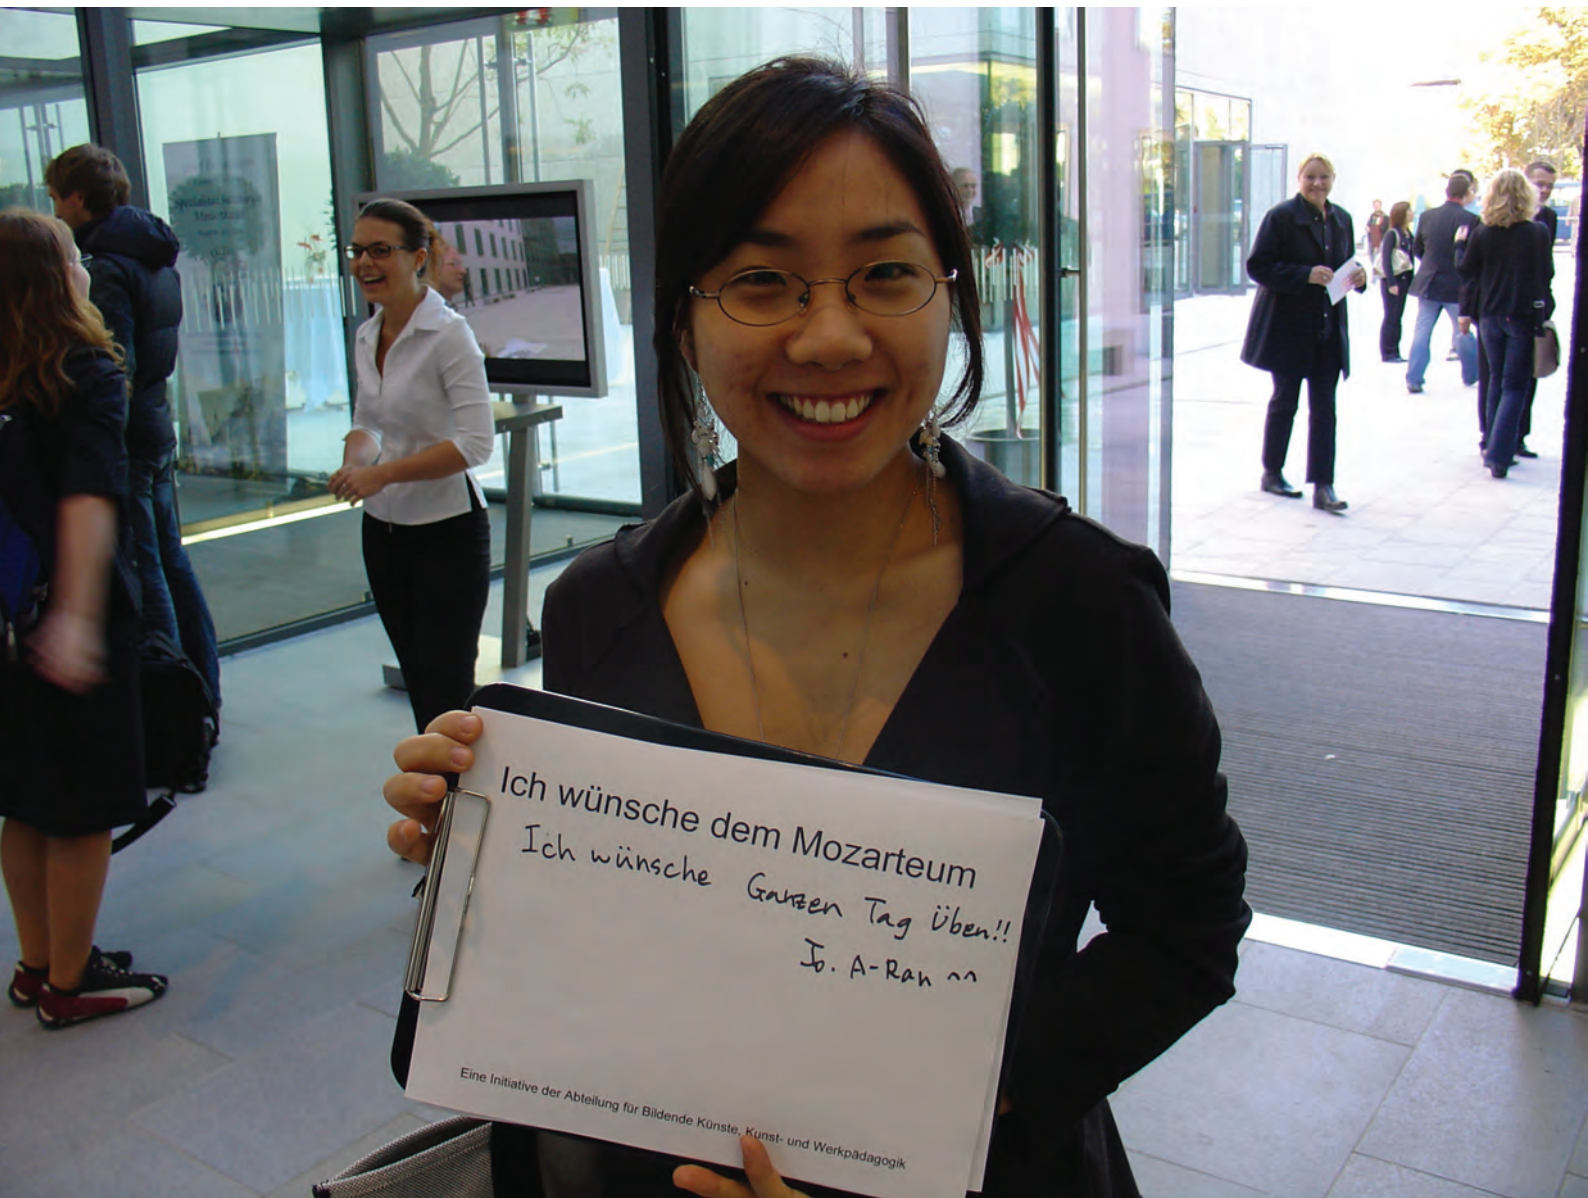 Ich wünsche dem Mozarteum
Ich wünsche Ganzen Tag Üben!!
Jo. A-Ran ^^
Eine Initiative der Abteilung für Bildende Künste, Kunst- und Werkpädagogik